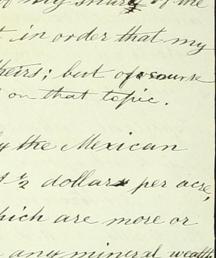 of my share of the
t in order that my
heirs; but of course
on that topic.
y the Mexican
½ dollars per acre,
hich are more or
any mineral wealth